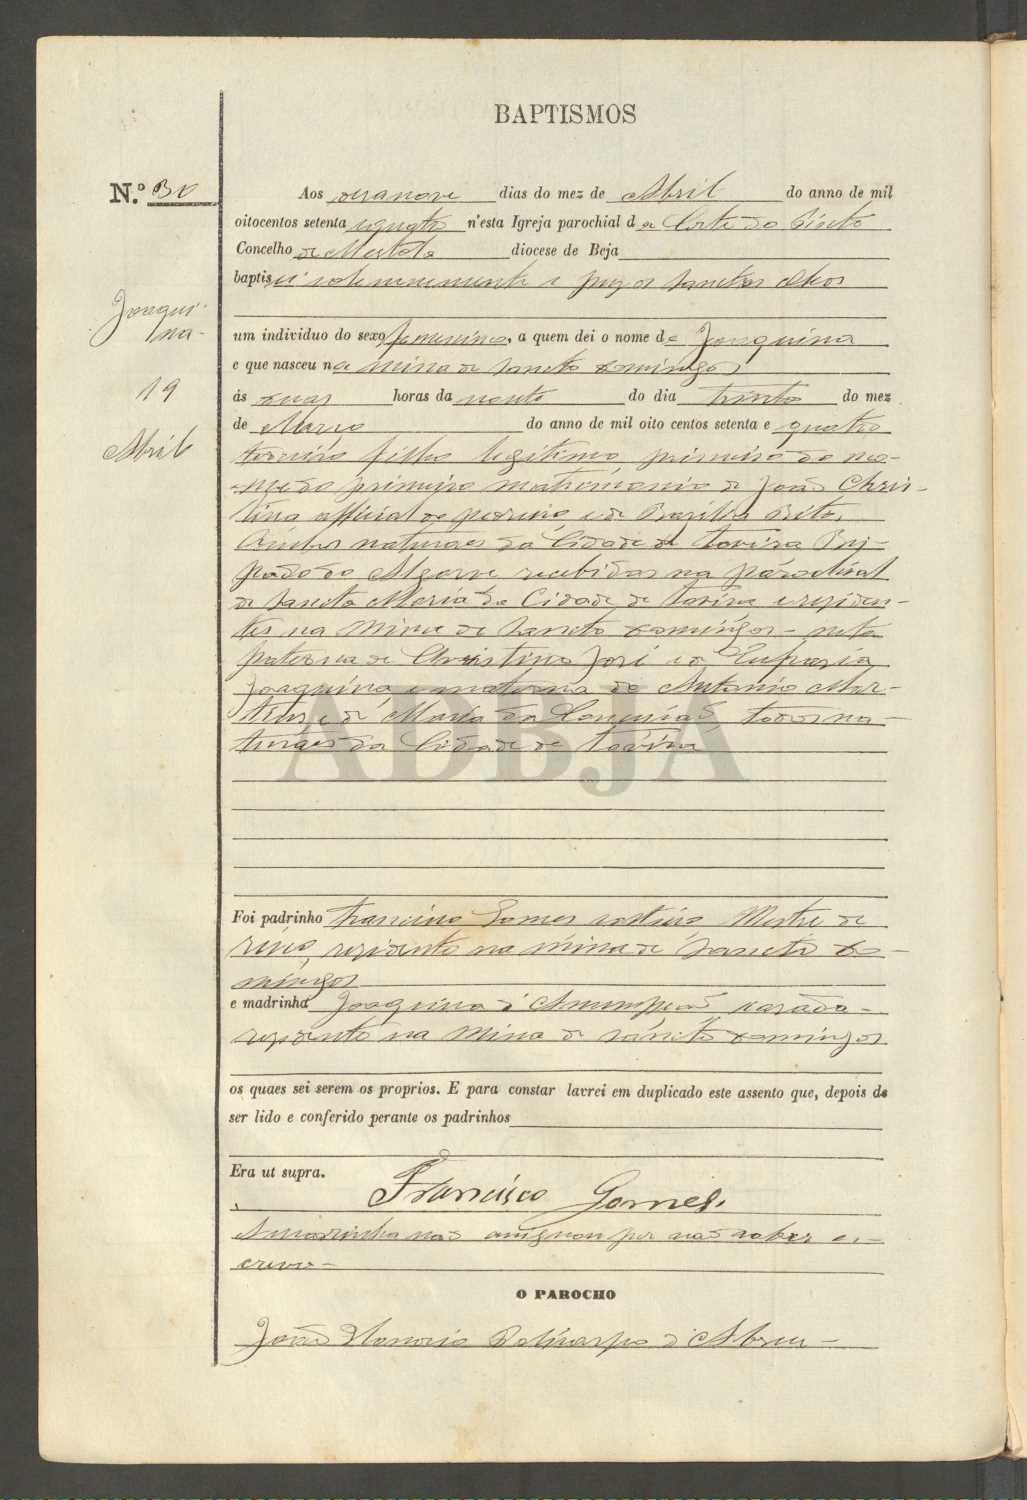 BAPTISMOS
N.º 30
Aos desanove dias do mez de Abril do anno de mil
oitocentos setenta e quatro n'esta Igreja parochial de Corte do Pinto
Concelho de Mertola diocese de Beja
baptisei solemnemente e puz os sanctos oleos
Joaqui-
na-
um individuo do sexo femenino, a quem dei o nome de Joaquina
e que nasceu na mina de Sancto Domingos
19
ás duas horas da noute do dia trinta do mez
Abril
de Março do anno de mil oito centos setenta e quatro
filho legitimo, primeiro do no-
me do primeiro matrimonio de João Chris-
tino official de pedreiro e de Brites
naturaes da Cidade de Tavira Bis-
pado do Algarve recebidos na parochial
de Sancta Maria da Cidade de Tavira e residen-
tes na Mina de Sancto Domingos - neta
paterna de Christino José e de Eufrasia
Joaquina, e materna de Antonio Mar-
tins, e de Maria da Conceição, todos na-
turaes da Cidade de Tavira
Foi padrinho Francisco Gomes solteiro Mestre de
residente na mina de Sancto Do-
mingos
e madrinha Joaquina d'Assumpção casada -
residente na Mina de Sancto Domingos
os quaes sei serem os proprios. E para constar lavrei em duplicado este assento que, depois de
ser lido e conferido perante os padrinhos
Era ut supra.
Francisco Gomes
A madrinha não assignou por não saber es-
crever -
O PAROCHO
João Honorio Policarpo d'Abreu -
ADBJA